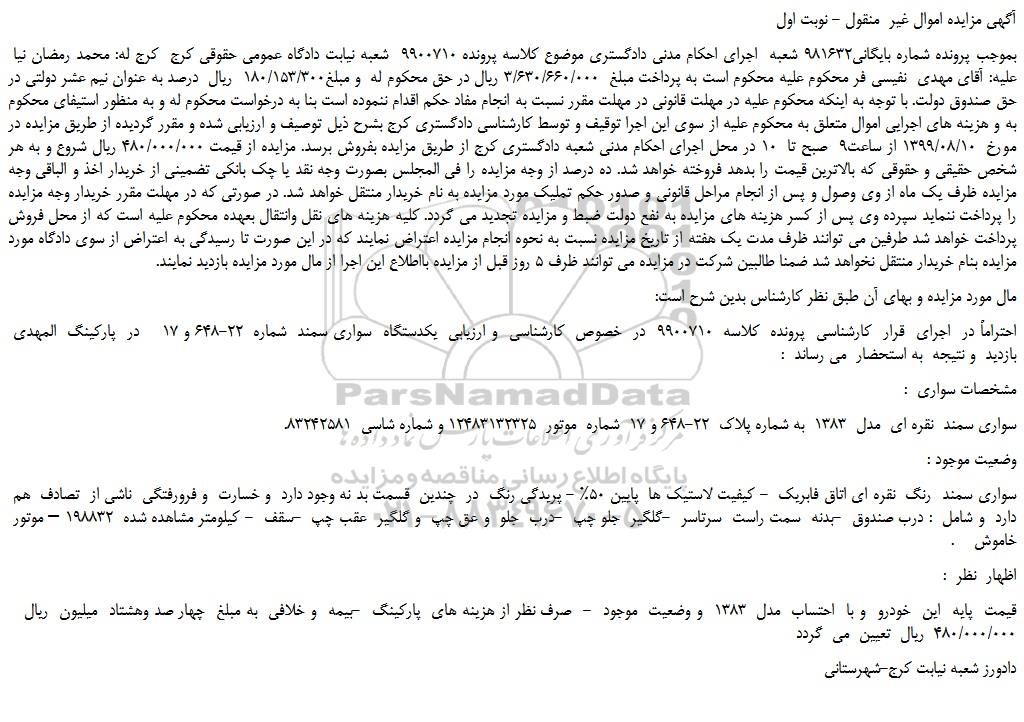 آگهی مزایده اموال غیر منقول - نوبت اول
بموجب پرونده شماره بایگانی۹۸۱۶۳۲ شعبه اجرای احکام مدنی دادگستری موضوع کلاسه پرونده ۹۹۰۰۷۱۰ شعبه نیابت دادگاه عمومی حقوقی کرج کرج له: محمد رمضان نیا
علیه: آقای مهدی نفیسی فر محکوم علیه محکوم است به پرداخت مبلغ ۳/۶۳۰/۶۶۰/۰۰۰ ریال در حق محکوم له و مبلغ۱۸۰/۱۵۳/۳۰۰ ریال درصد به عنوان نیم عشر دولتی در
حق صندوق دولت. با توجه به اینکه محکوم علیه در مهلت قانونی در مهلت مقرر نسبت به انجام مفاد حکم اقدام ننموده است بنا به درخواست محکوم له و به منظور استیفای محکوم
به و هزینه های اجرایی اموال متعلق به محکوم علیه از سوی این اجرا توقیف و توسط کارشناسی دادگستری کرج بشرح ذیل توصیف و ارزیابی شده و مقرر گردیده از طریق مزایده در
مورخ ۱۳۹۹/۰۸/۱۰ از ساعت۹ صبح تا ۱۰ در محل اجرای احکام مدنی شعبه دادگستری کرج از طریق مزایده بفروش برسد. مزایده از قیمت ۴۸۰/۰۰۰/۰۰۰ ریال شروع و به هر
شخص حقیقی و حقوقی که بالاترین قیمت را بدهد فروخته خواهد شد. ده درصد از وجه مزایده را فی المجلس بصورت وجه نقد یا چک بانکی تضمینی از خریدار اخذ و الباقی وجه
مزایده ظرف یک ماه از وی وصول و پس از انجام مراحل قانونی و صدور حکم تملیک مورد مزایده به نام خریدار منتقل خواهد شد. در صورتی که در مهلت مقرر خریدار وجه مزایده
را پرداخت ننماید سپرده وی پس از کسر هزینه های مزایده به نفع دولت ضبط و مزایده تجدید می گردد. کلیه هزینه های نقل وانتقال بعهده محکوم علیه است که از محل فروش
پرداخت خواهد شد طرفین می توانند ظرف مدت یک هفته از تاریخ مزایده نسبت به نحوه انجام مزایده اعتراض نمایند که در این صورت تا رسیدگی به اعتراض از سوی دادگاه مورد
مزایده بنام خریدار منتقل نخواهد شد ضمنا طالبین شرکت در مزایده می توانند ظرف ۵ روز قبل از مزایده بااطلاع این اجرا از مال مورد مزایده بازدید نمایند.
مال مورد مزایده و بهای آن طبق نظر کارشناس بدین شرح است:
احتراماً در اجرای قرار کارشناسی پرونده کلاسه ۹۹۰۰۷۱۰ در خصوص کارشناسی و ارزیابی یکدستگاه سواری سمند شماره ۲۲-۶۴۸ و ۱۷ در پارکینگ المهدی
بازدید و نتیجه به استحضار می رساند :
مشخصات سواری :
سواری سمند نقره ای مدل ۱۳۸۳ به شماره پلاک ۲۲-۶۴۸ و ۱۷ شماره موتور ۱۲۴۸۳۱۳۲۳۲۵ و شماره شاسی ۸۳۲۴۲۵۸۱.
وضعیت موجود :
سواری سمند رنگ نقره ای اتاق فابریک - کیفیت لاستیک ها پایین ۵۰٪ - پریدگی رنگ در چندین قسمت بد نه وجود دارد و خسارت و فرورفتگی ناشی از تصادف هم
دارد و شامل : درب صندوق -بدنه سمت راست سرتاسر -گلگیر جلو چپ -درب جلو و عق چپ و گلگیر عقب چپ -سقف - کیلومتر مشاهده شده ۱۹۸۸۳۲ – موتور
خاموش .
اظهار نظر :
قیمت پایه این خودرو و با احتساب مدل ۱۳۸۳ و وضعیت موجود - صرف نظر از هزینه های پارکینگ -بیمه و خلافی به مبلغ چهار صد وهشتاد میلیون ریال
۴۸۰/۰۰۰/۰۰۰ ریال تعیین می گردد
دادورز شعبه نیابت کرج-شهرستانی
ParsNamadData
مرکز فرآوری اطلاعات پارس نماد داده ها
پایگاه اطلاع رسانی مناقصه و مزایده
۰۲۱-۸۸۳۴۹۶۷۰-۵